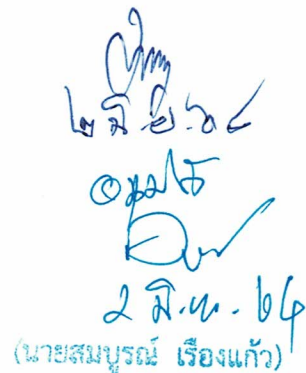 ๒ มิ.ย. ๖๔
อนุมัติ
2 มิ.ย. 64
(นายสมบูรณ์ เรืองแก้ว)